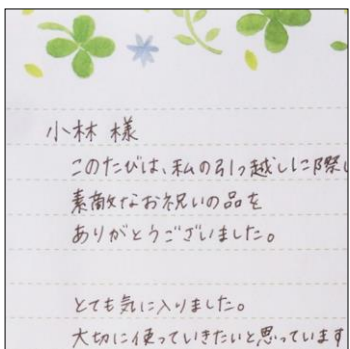 小林 様
このたびは、私の引っ越しに際し
素敵なお祝いの品を
ありがとうございました。
とても気に入りました。
大切に使っていきたいと思っています